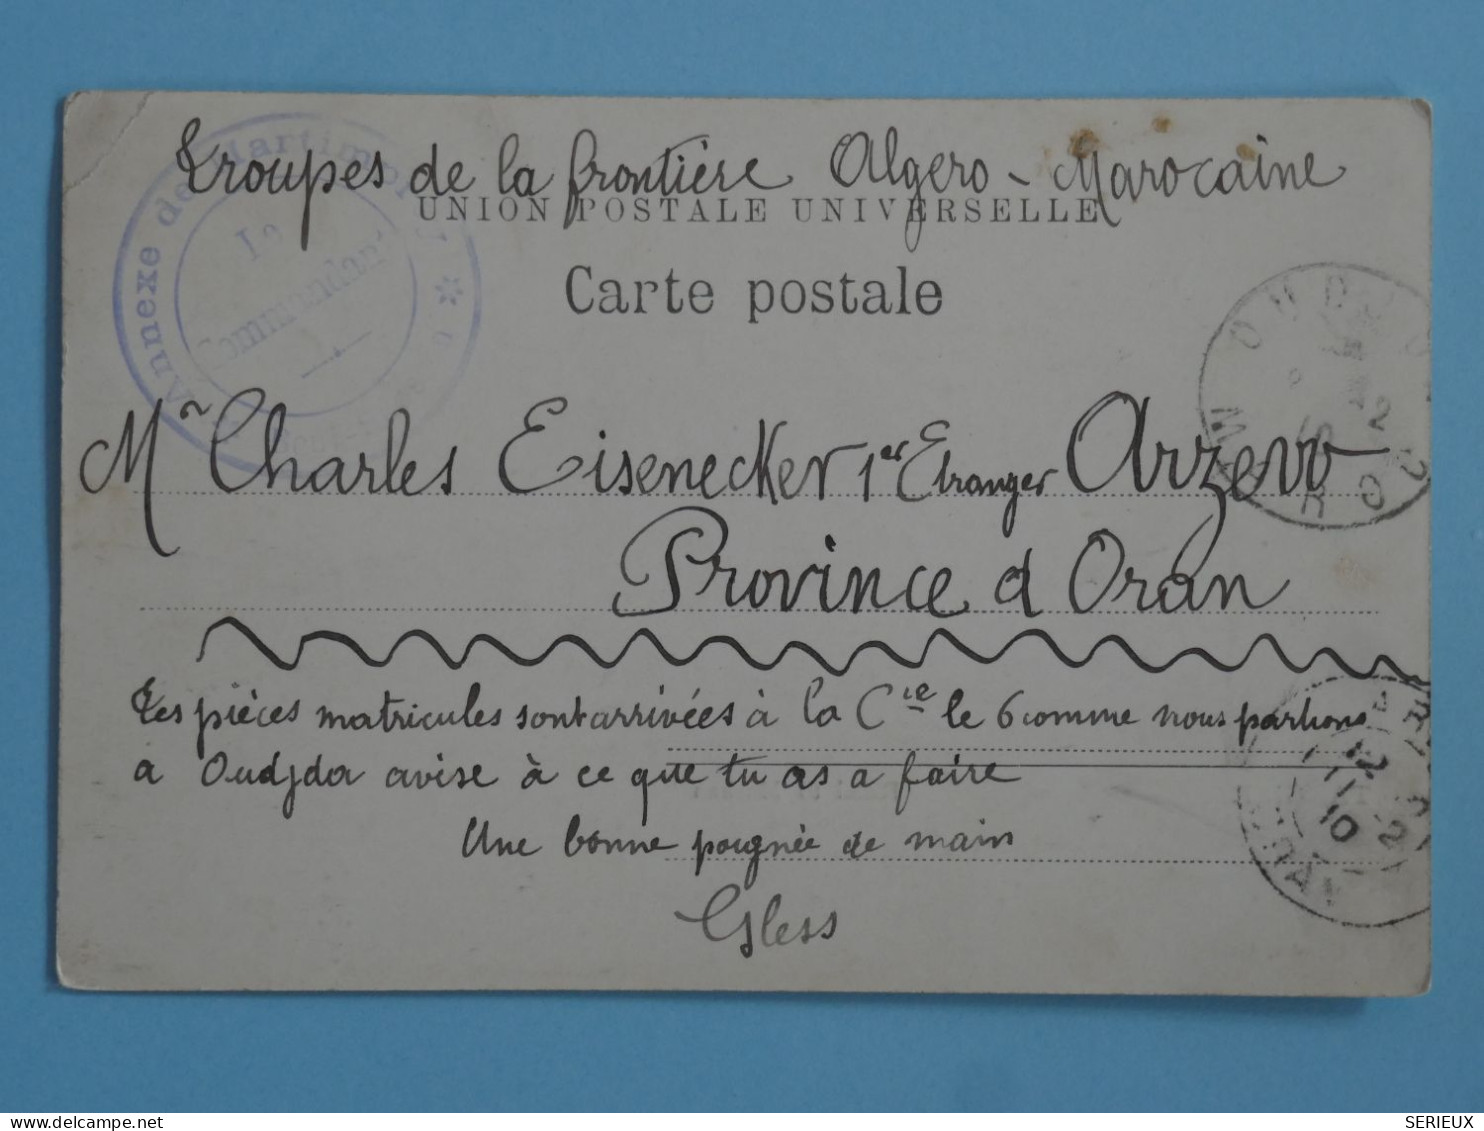 Troupes de la frontière Algero-Marocaine
UNION POSTALE UNIVERSELLE
Carte postale
Annexe de Martimprey
Le
Commandant
OUDJDA
MAROC
Mr Charles Eisenecker 1er Etranger Arzew
Province d Oran
Les pièces matricules sont arrivées à la Cie le 6 comme nous partions
a Oudjda avise à ce que tu as a faire
Une bonne poignée de main
Gless
12
10
SERIEUX